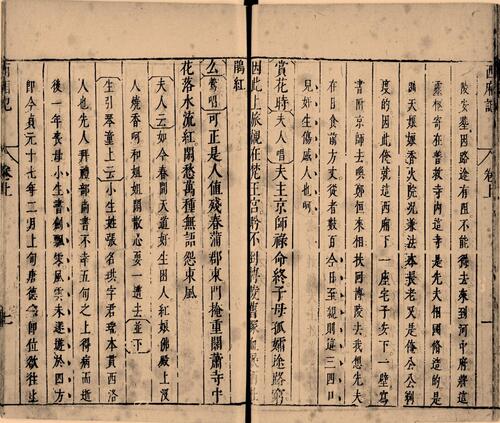 西廂記
卷上
陵安塟因路途有阻不能得去來到河中府將這
靈柩寄在普救寺內這寺是先夫相國脩造的是
則天娘娘香火院况兼法本長老又是俺公公剃
度的因此俺就這西廂下一座宅子安下一壁寫
書附京師去喚鄭恒來相扶回博陵去我想先夫
在日食前方丈從者數百今日至親則這三四口
兒好生傷感人也呵
賞花時夫人唱夫主京師祿命終子母孤孀途路窮
因此上旅櫬在梵王宮盼不到博陵舊塚血淚灑杜
鵑紅
么鶯唱可正是人值殘春蒲郡東門掩重關蕭寺中
花落水流紅閑愁萬種無語怨東風
夫人云如今春間天道好生困人紅娘佛殿上沒
人燒香呵和姐姐閒散心耍一遭去並下
生引琴童上云小生姓張名珙字君瑞本貫西洛
人也先人拜禮部尚書不幸五旬之上得病而逝
後一年喪母小生書劍飄零風雲未遂遊於四方
即今貞元十七年二月上旬唐德宗即位欲往上
西廂記
卷上